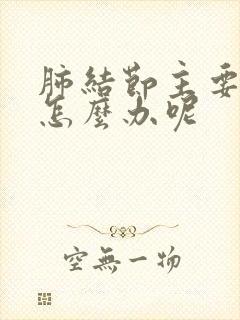 肺結節主要
怎麼办呢
空無一物